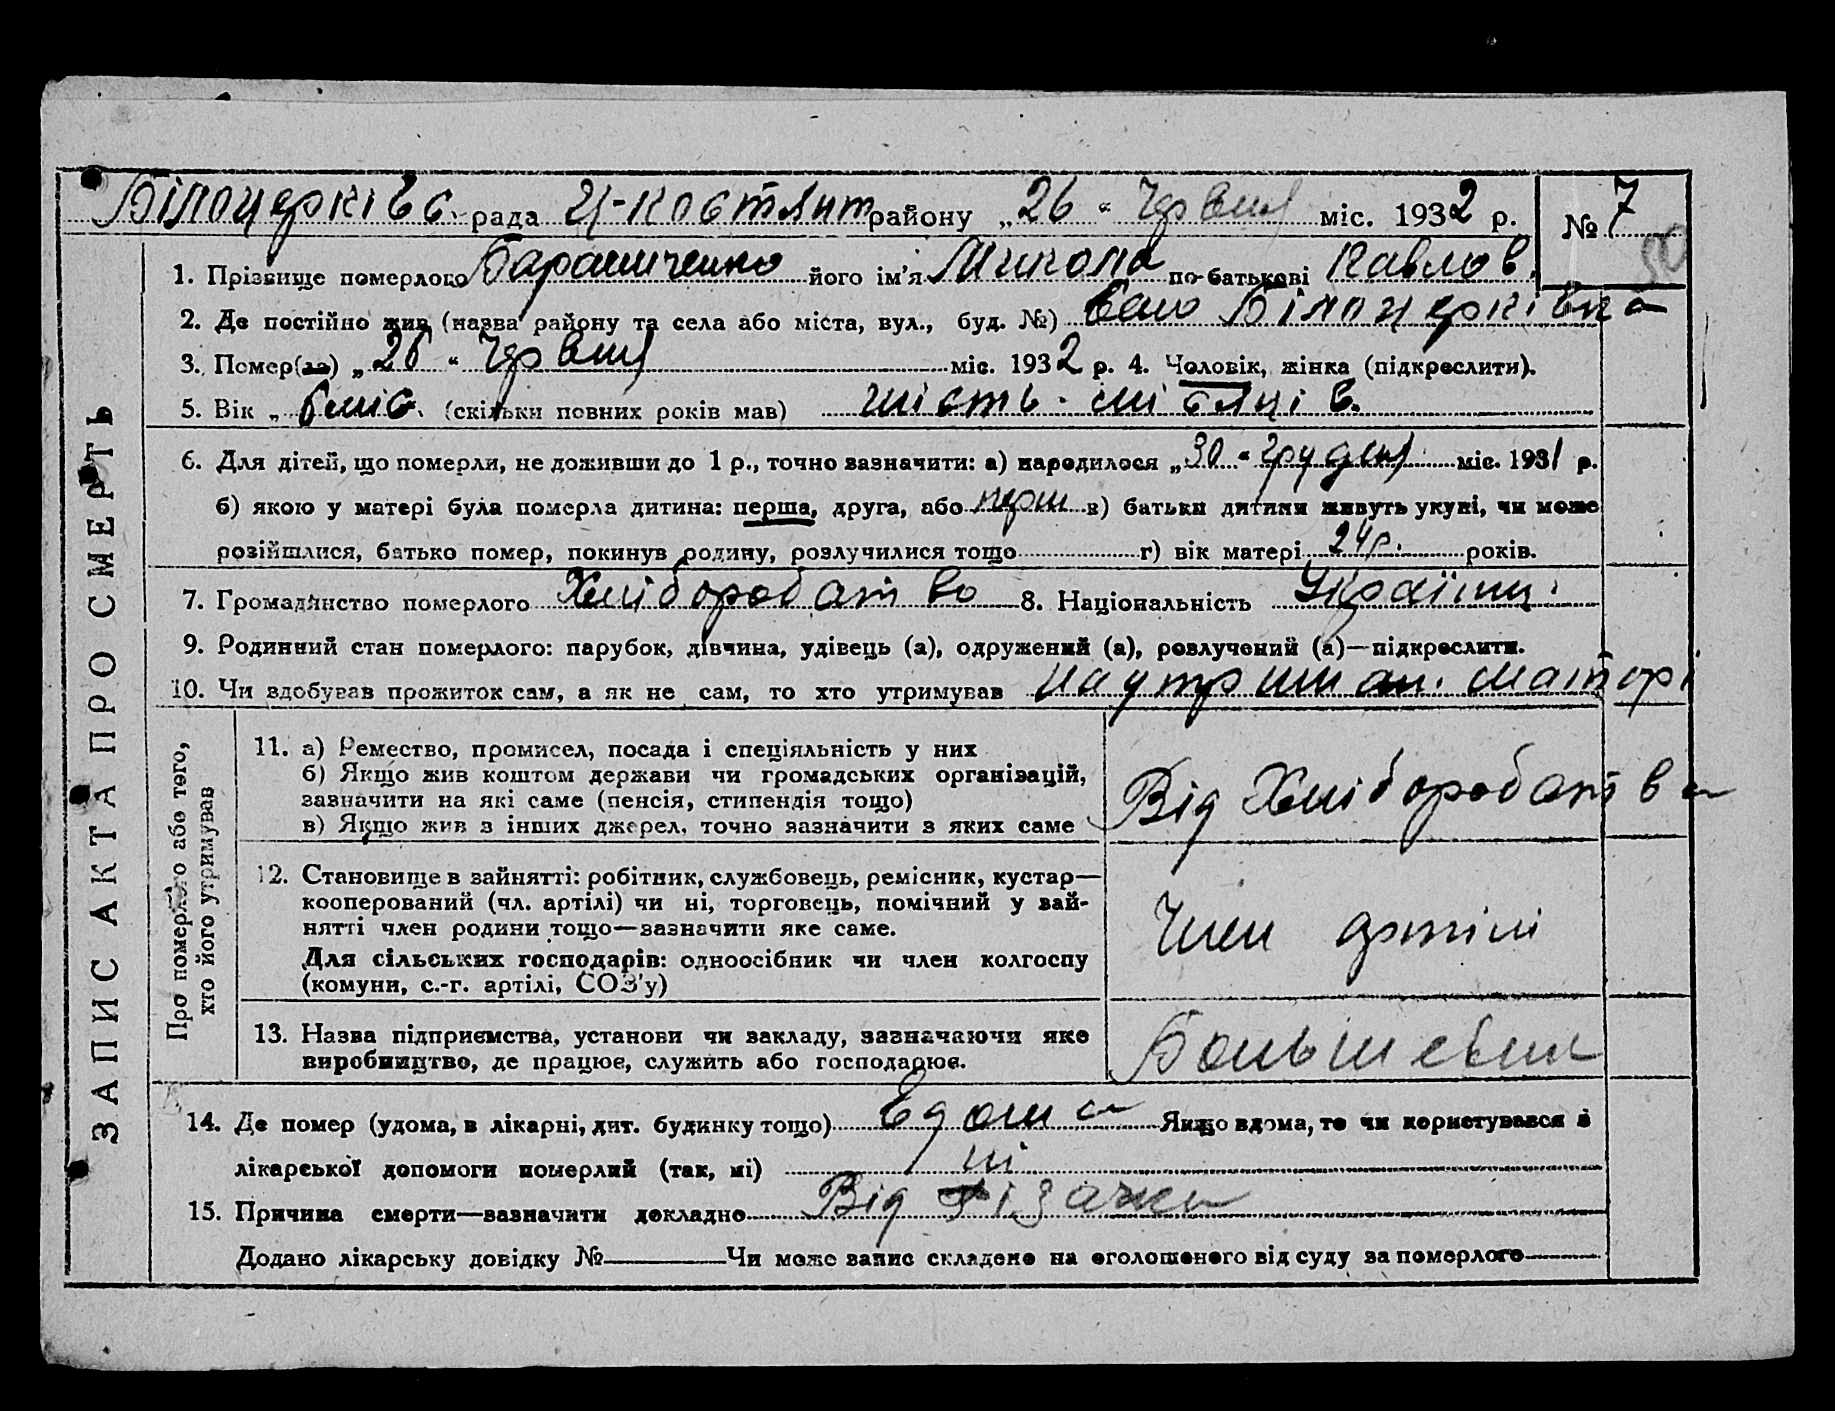 Білоцерківс. рада Ц-костянт району „26 “ Червня міс. 1932 р. № 7
50
1. Прізвище померлого Барамиченко його ім'я Микола по-батькові Павлов.
2. Де постійно жив (назва району та села або міста, вул., буд. №) село Білоцерківка
3. Помер(ла) „26 “ Червня міс. 1932 р. 4. Чоловік, жінка (підкреслити).
5. Вік „ 6 міс. (скільки повних років мав) шість місяців.
6. Для дітей, що померли, не доживши до 1 р., точно зазначити: а) народилося „30 “ грудня міс. 1931 р.
б) якою у матері була померла дитина: перша, друга, або перш в) батьки дитини живуть укупі, чи може
розійшлися, батько помер, покинув родину, розлучилися тощо г) вік матері 24 р. років.
7. Громадянство померлого Хліборобство 8. Національність Україн.
9. Родинний стан померлого: парубок, дівчина, удівець (а), одружений (а), розлучений (а)—підкреслити.
10. Чи здобував прожиток сам, а як не сам, то хто утримував на утриман. матері
ЗАПИС АКТА ПРО СМЕРТЬ
Про померлого або того, хто його утримував
11. а) Ремество, промисел, посада і спеціяльність у них
б) Якщо жив коштом держави чи громадських організацій,
зазначити на які саме (пенсія, стипендія тощо)
в) Якщо жив з інших джерел, точно зазначити з яких саме
Від Хліборобства
12. Становище в зайнятті: робітник, службовець, ремісник, кустар—
кооперований (чл. артілі) чи ні, торговець, помічний у зай-
нятті член родини тощо—зазначити яке саме.
Для сільських господарів: одноосібник чи член колгоспу
(комуни, с.-г. артілі, СОЗ'у)
Член артілі
13. Назва підприємства, установи чи закладу, зазначаючи яке
виробництво, де працює, служить або господарює.
Большевик
14. Де помер (удома, в лікарні, дит. будинку тощо) Вдома Якщо вдома, то чи користувався з
лікарської допомоги померлий (так, ні) ні
15. Причина смерти—зазначити докладно Від різачки
Додано лікарську довідку № Чи може запис складено на оголошеного від суду за померлого